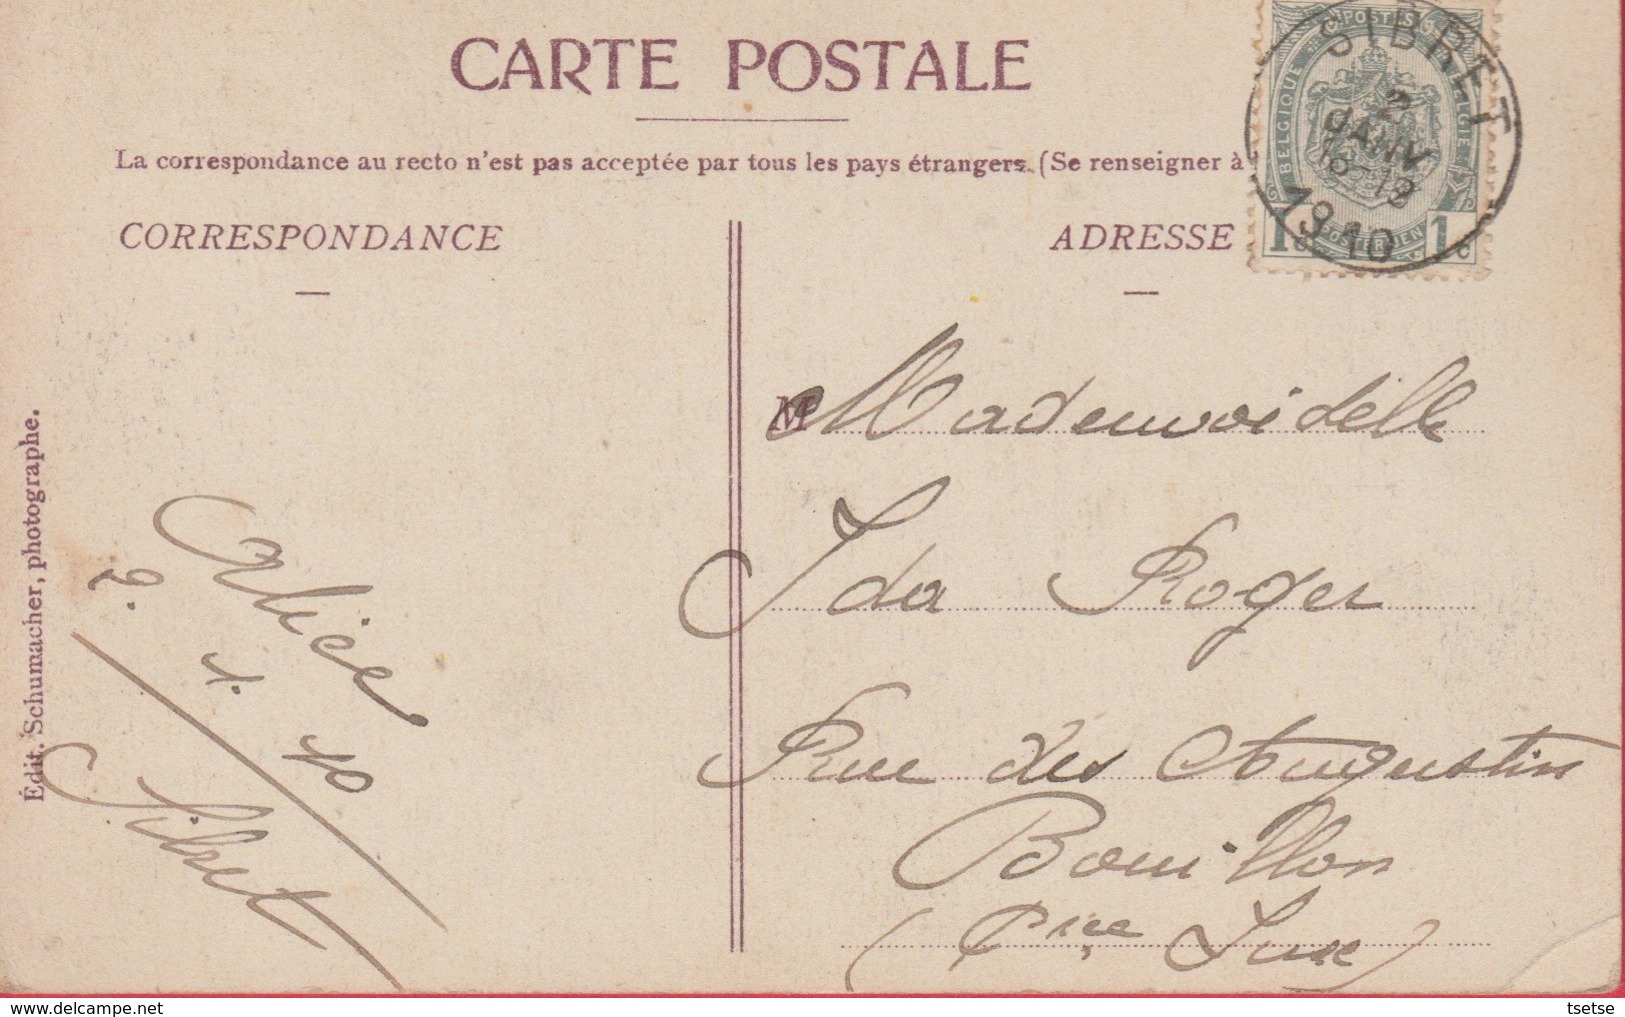 CARTE POSTALE
La correspondance au recto n'est pas acceptée par tous les pays étrangers. (Se renseigner à
CORRESPONDANCE
ADRESSE
POSTES
BELGIQUE
BELGIE
POSTERIJEN
1c 1c
SIBRET
2
JANV
1910
Mademoidelle
Ida Roger
Rue des Augustin
Bouillon
(Pce Lux)
Alice
2. 1. 10
Sibret
Édit. Schumacher, photographe.
tsetse